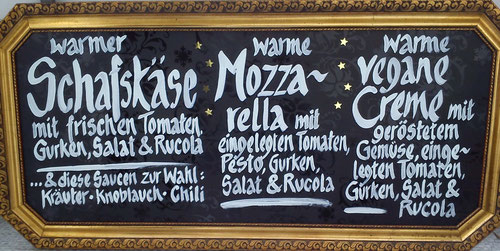 warmer
Schafskäse
mit frischen Tomaten,
Gurken, Salat & Rucola
...& diese Saucen zur Wahl:
Kräuter · Knoblauch · Chili
warme
Mozza~
rella mit
eingelegten Tomaten,
Pesto, Gurken,
Salat & Rucola
warme
vegane
Creme mit
geröstetem
Gemüse, einge~
legten Tomaten,
Gurken, Salat &
Rucola